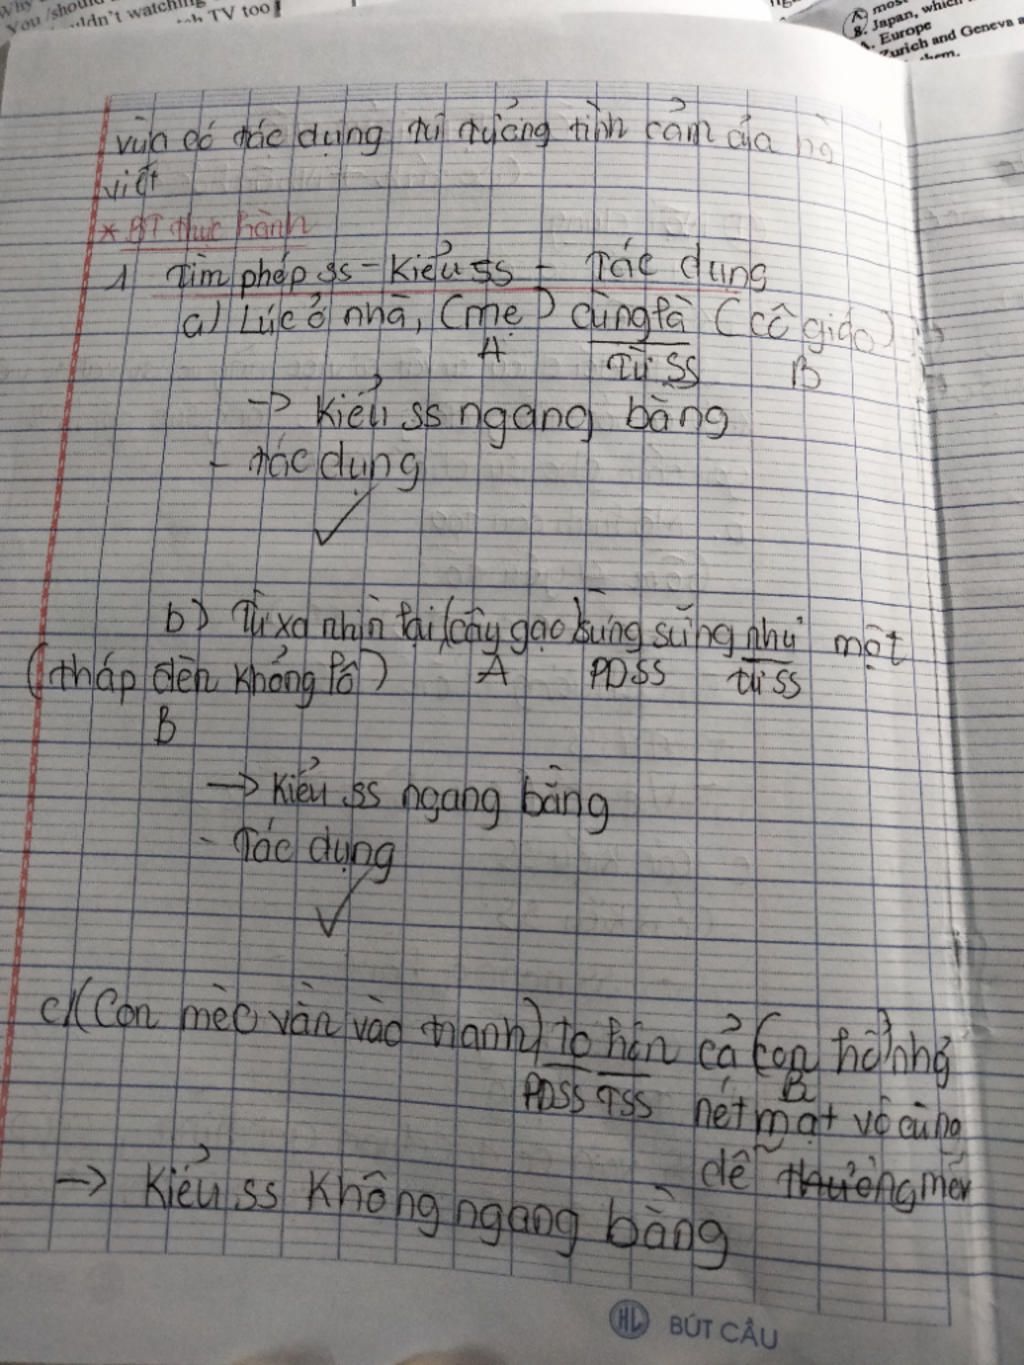 Why
You /should
uldn't watching
TV too
A. mos
B. Japan, which
A. Europe
Zurich and Geneva a
them.
vừa có tác dụng tư tưởng tình cảm của
viết
* BT thực hành
1) Tìm phép ss - Kiểu ss - Tác dụng
a) Lúc ở nhà, (mẹ) cũng là (cô giáo)
A Từ SS B
-> Kiểu ss ngang bằng
- tác dụng
b) Từ xa nhìn lại (cây gạo) sừng sững như một
(tháp đèn khổng lồ) A PDSS từ ss
B
-> Kiểu ss ngang bằng
- Tác dụng
c) (Con mèo vằn vào tranh) to hơn cả (con hổ) nhưng
PDSS TSS B
nét mặt vô cùng
dễ thương mến
-> Kiểu ss Không ngang bằng
HL BÚT CÂU